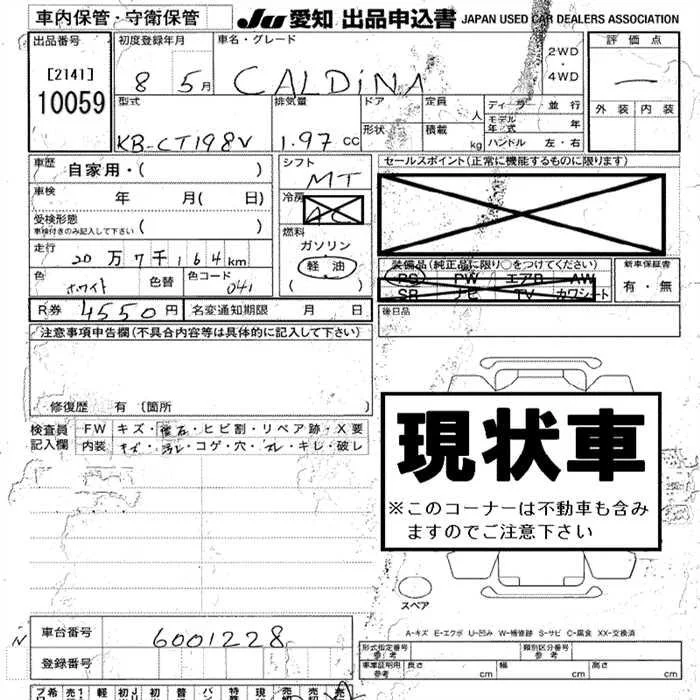 車内保管・守衛保管
JU 愛知 出品申込書 JAPAN USED CAR DEALERS ASSOCIATION
出品番号 初度登録年月 車名・グレード 評価点
[2141] 8 5月 CALDINA 2WD・4WD —
10059 型式 排気量 ドア 定員 人 ディーラー・並行 外装 内装
KB-CT198V 1.97 cc 形状 積載 kg モデル年式 年
ハンドル 左・右
車歴 自家用・( ) シフト セールスポイント(正常に機能するものに限ります)
MT
車検 年 月( 日) 冷房
AC
受検形態 ( )
車検付きのみ記入して下さい
燃料
走行 20万7千164km ガソリン 装備品(純正品に限り○をつけてください) 新車保証書
色 ホワイト 色替 色コード 041 軽油 PS PW エアB AW 有・無
( ) SR ナビ TV カワシート
R券 4550円 名変通知期限 月 日 後日品
注意事項申告欄(不具合内容等は具体的に記入して下さい)
修復歴 有 〔箇所 )
現状車
※このコーナーは不動車も含み
ますのでご注意下さい
検査員 FW キズ・飛石・ヒビ割・リペア跡・X要
記入欄 内装 キズ・汚れ・コゲ・穴・スレ・キレ・破レ
スペア
A-キズ E-エクボ U-凹み W-補修跡 S-サビ C-腐食 XX-交換済
車台番号 6001228 形式指定番号 参考 類別区分番号 参考
登録番号 車庫証明用 参考 長さ cm 幅 cm 高さ cm